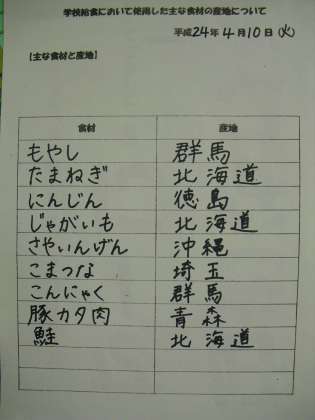 学校給食において使用した主な食材の産地について
平成24年4月10日(火)
【主な食材と産地】
食材 産地
もやし 群馬
たまねぎ 北海道
にんじん 徳島
じゃがいも 北海道
さやいんげん 沖縄
こまつな 埼玉
こんにゃく 群馬
豚カタ肉 青森
鮭 北海道